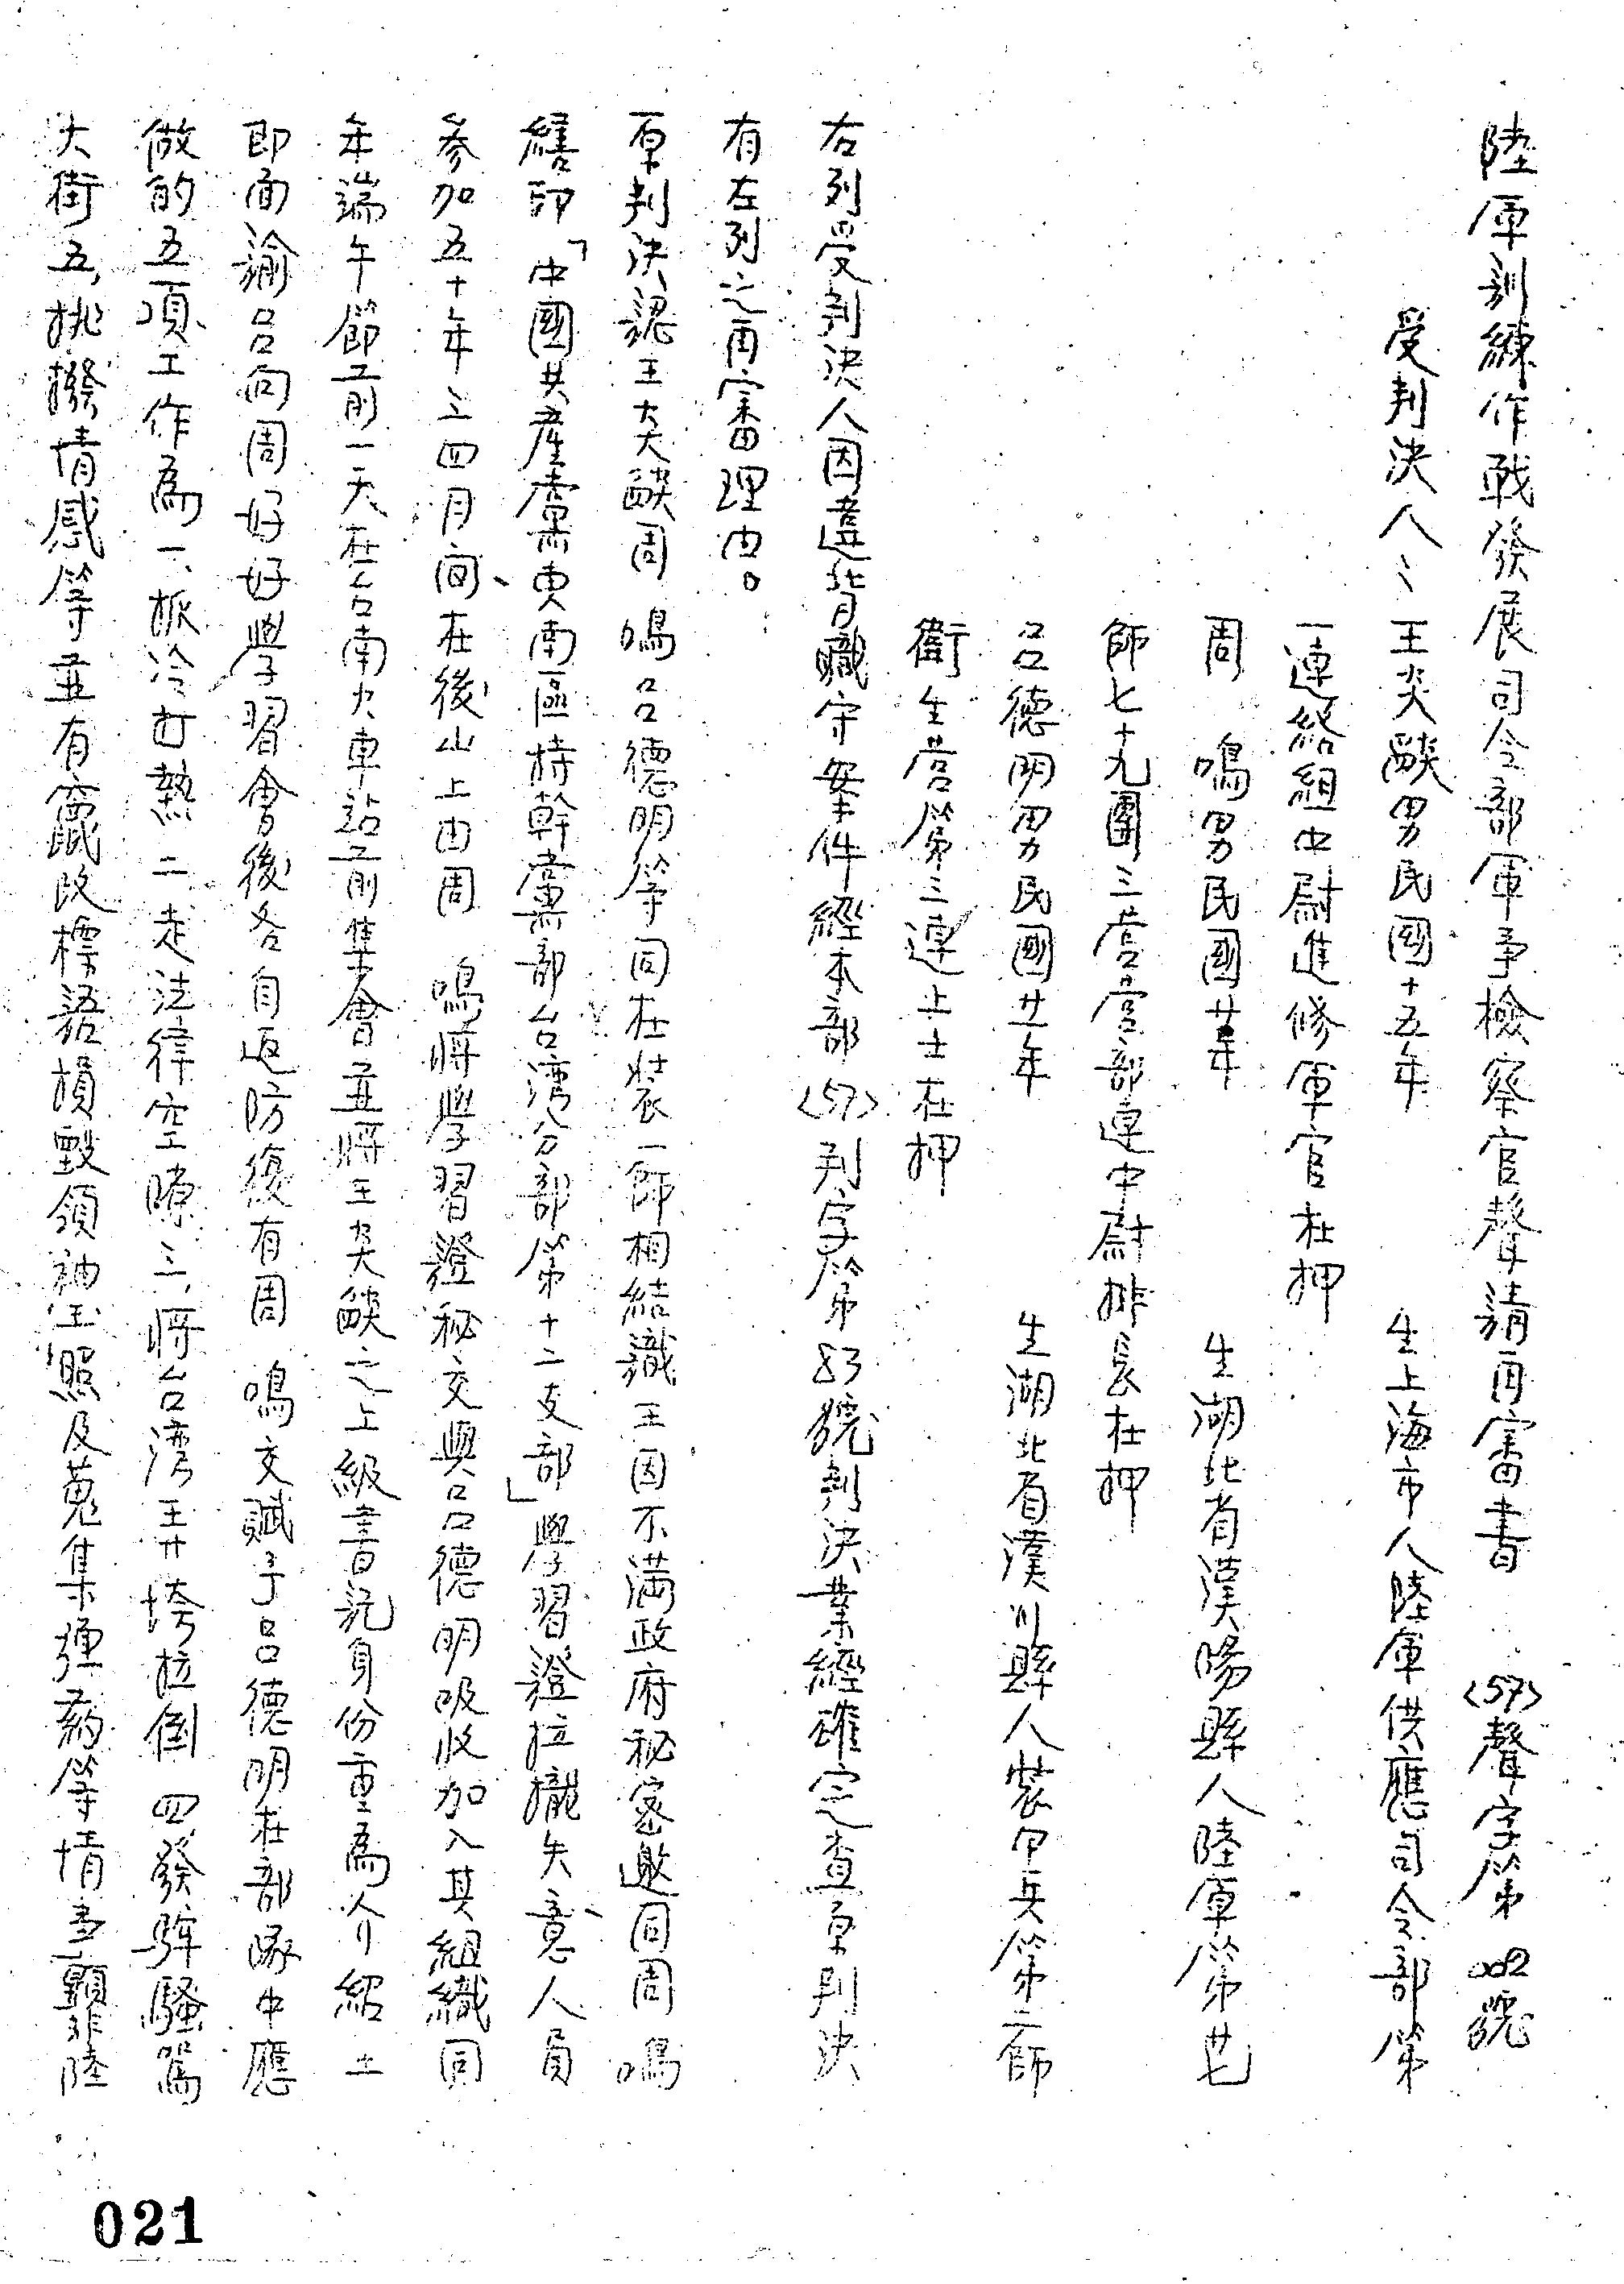 陸軍訓練作戰發展司令部軍事檢察官聲請再審書 〈57〉聲字第002號
受判決人：王炎燄男民國十五年 生上海市人陸軍供應司令部第
一連絡組中尉進修軍官在押
周 鳴男民國廿年 生湖北省漢陽縣人陸軍第廿七
師七十九團三營營部連中尉排長在押
呂德明男民國廿一年 生湖北省漢川縣人裝甲兵第二師
衛生營第三連上士在押
右列受判決人因違背職守案件經本部〈57〉判字第83號判決業經確定查原判決
有左列之再審理由。
原判決認王炎燄周 鳴呂德明等同在裝一師相結識王因不滿政府秘密邀同周 鳴
繕印「中國共產黨東南區特幹黨部台灣分部第十二支部」學習證拉攏失意人員
參加五十年三四月間、在後山上由周 鳴將學習證秘交與呂德明吸收加入其組織同
年端午節前一天在台南火車站前集會並將王炎燄之上級書記身份重為介紹王
即面諭呂向周好好學習會後各自返防復有周 鳴交賦予呂德明在部隊中應
做的五項工作為一、派冷打熱二走法律空隙三、將台灣王廾垮拉倒四、發牢騷罵
大街五、挑撥情感等並有竄改標語損毀領袖玉照及蒐集彈藥等情事顯非陸
021